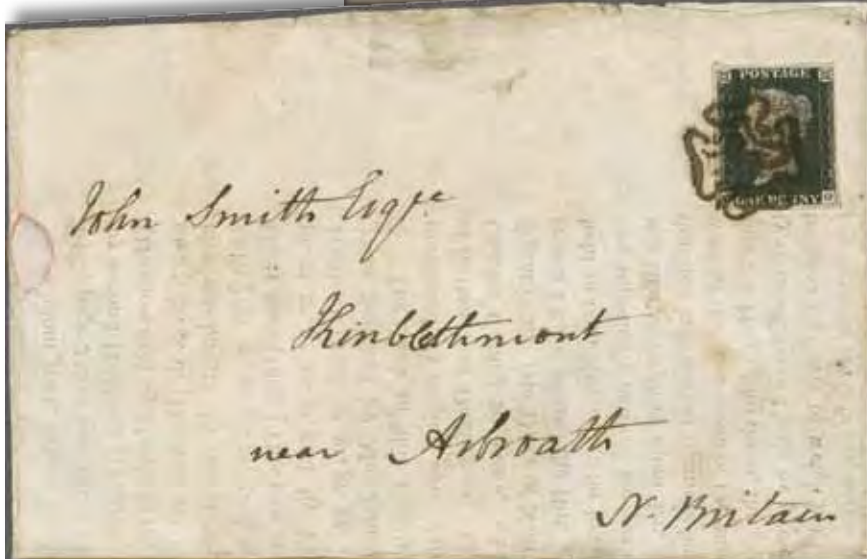 POSTAGE
ONE PENNY
John Smith Esqre
Kinblethmont
near Arbroath
N. Britain